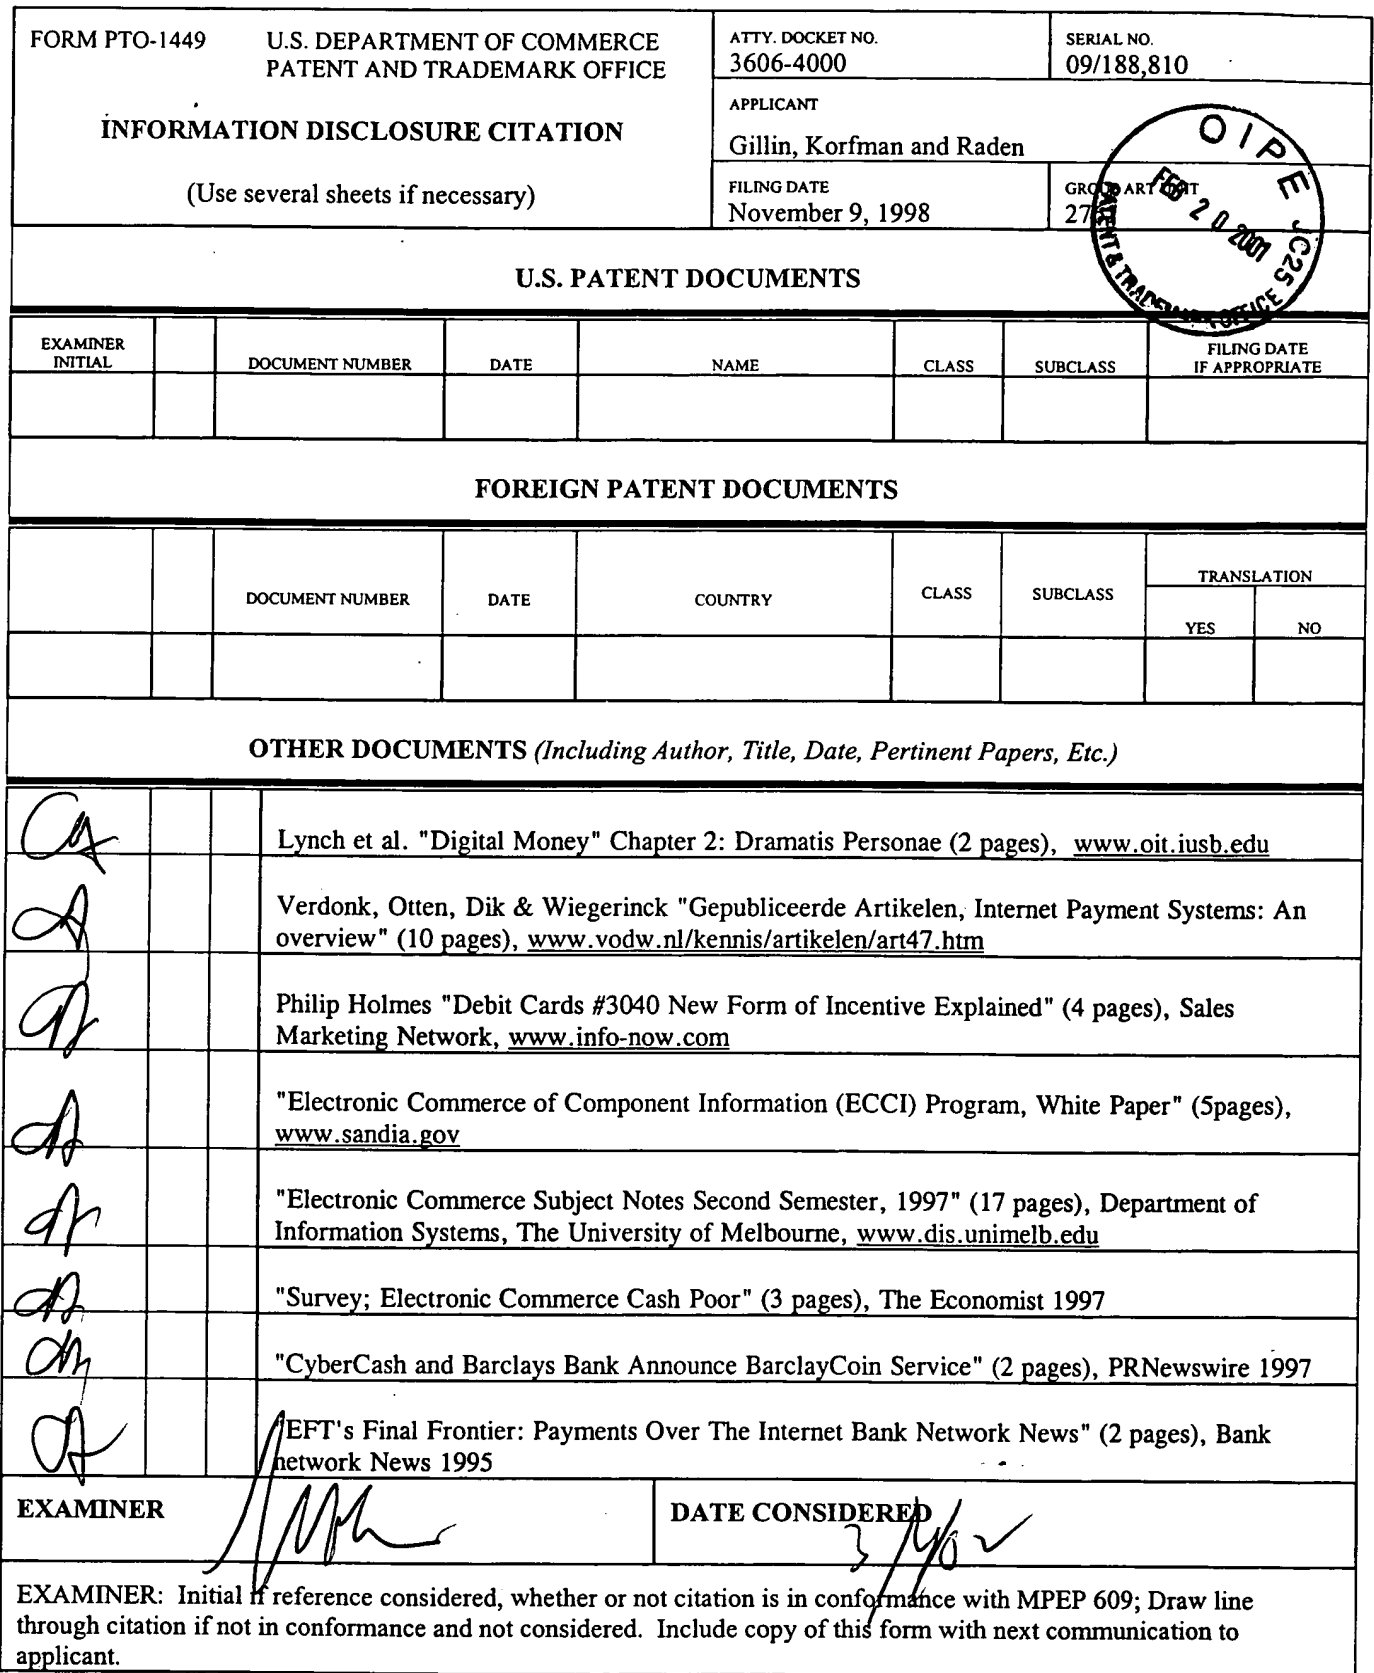 FORM PTO-1449
U.S. DEPARTMENT OF COMMERCE
PATENT AND TRADEMARK OFFICE
INFORMATION DISCLOSURE CITATION
(Use several sheets if necessary)
ATTY. DOCKET NO.
3606-4000
SERIAL NO.
09/188,810
APPLICANT
Gillin, Korfman and Raden
FILING DATE
November 9, 1998
GROUP ART UNIT
27
OIPE JC25
FEB 20 2001
PATENT & TRADEMARK OFFICE
U.S. PATENT DOCUMENTS
EXAMINER
INITIAL
DOCUMENT NUMBER
DATE
NAME
CLASS
SUBCLASS
FILING DATE
IF APPROPRIATE
FOREIGN PATENT DOCUMENTS
DOCUMENT NUMBER
DATE
COUNTRY
CLASS
SUBCLASS
TRANSLATION
YES
NO
OTHER DOCUMENTS (Including Author, Title, Date, Pertinent Papers, Etc.)
Lynch et al. "Digital Money" Chapter 2: Dramatis Personae (2 pages), www.oit.iusb.edu
Verdonk, Otten, Dik & Wiegerinck "Gepubliceerde Artikelen, Internet Payment Systems: An
overview" (10 pages), www.vodw.nl/kennis/artikelen/art47.htm
Philip Holmes "Debit Cards #3040 New Form of Incentive Explained" (4 pages), Sales
Marketing Network, www.info-now.com
"Electronic Commerce of Component Information (ECCI) Program, White Paper" (5pages),
www.sandia.gov
"Electronic Commerce Subject Notes Second Semester, 1997" (17 pages), Department of
Information Systems, The University of Melbourne, www.dis.unimelb.edu
"Survey; Electronic Commerce Cash Poor" (3 pages), The Economist 1997
"CyberCash and Barclays Bank Announce BarclayCoin Service" (2 pages), PRNewswire 1997
"EFT's Final Frontier: Payments Over The Internet Bank Network News" (2 pages), Bank
network News 1995
EXAMINER
DATE CONSIDERED
EXAMINER: Initial if reference considered, whether or not citation is in conformance with MPEP 609; Draw line
through citation if not in conformance and not considered. Include copy of this form with next communication to
applicant.